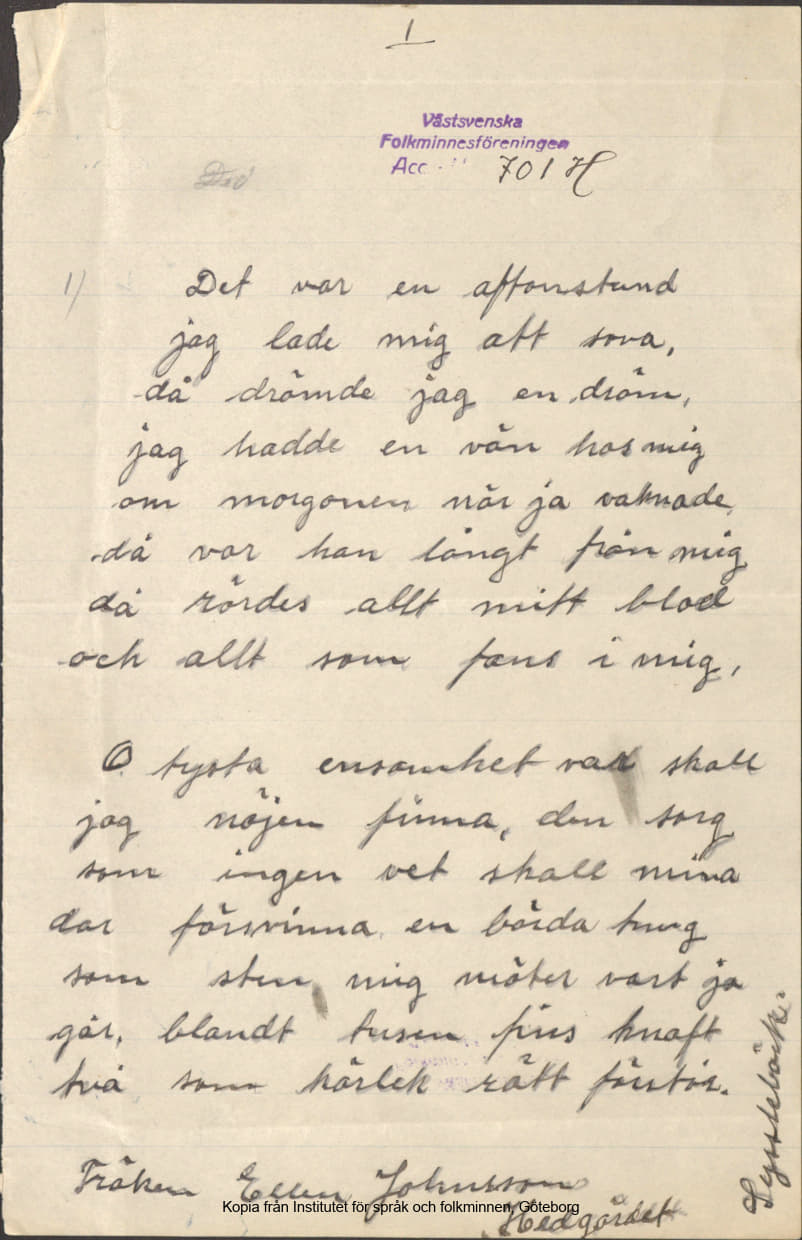 1
Västsvenska
Folkminnesföreningen
Acc 701 H
1) Det var en aftonstund
jag lade mig att sova,
då drömde jag en dröm,
jag hadde en vän hos mig
om morgonen när ja vaknade,
då var han långt från mig
då rördes allt mitt blod
och allt som fans i mig,
O tysta ensamhet vad skall
jag nöjen finna, den sorg
som ingen vet skall mina
dar försvinna en börda tung
som sten mig möter vart ja
går, blandt tusen fins knaft
två som kärlek rätt förstår.
Fröken Ellen Johnsson
Hedgärdet
Kopia från Institutet för språk och folkminnen, Göteborg